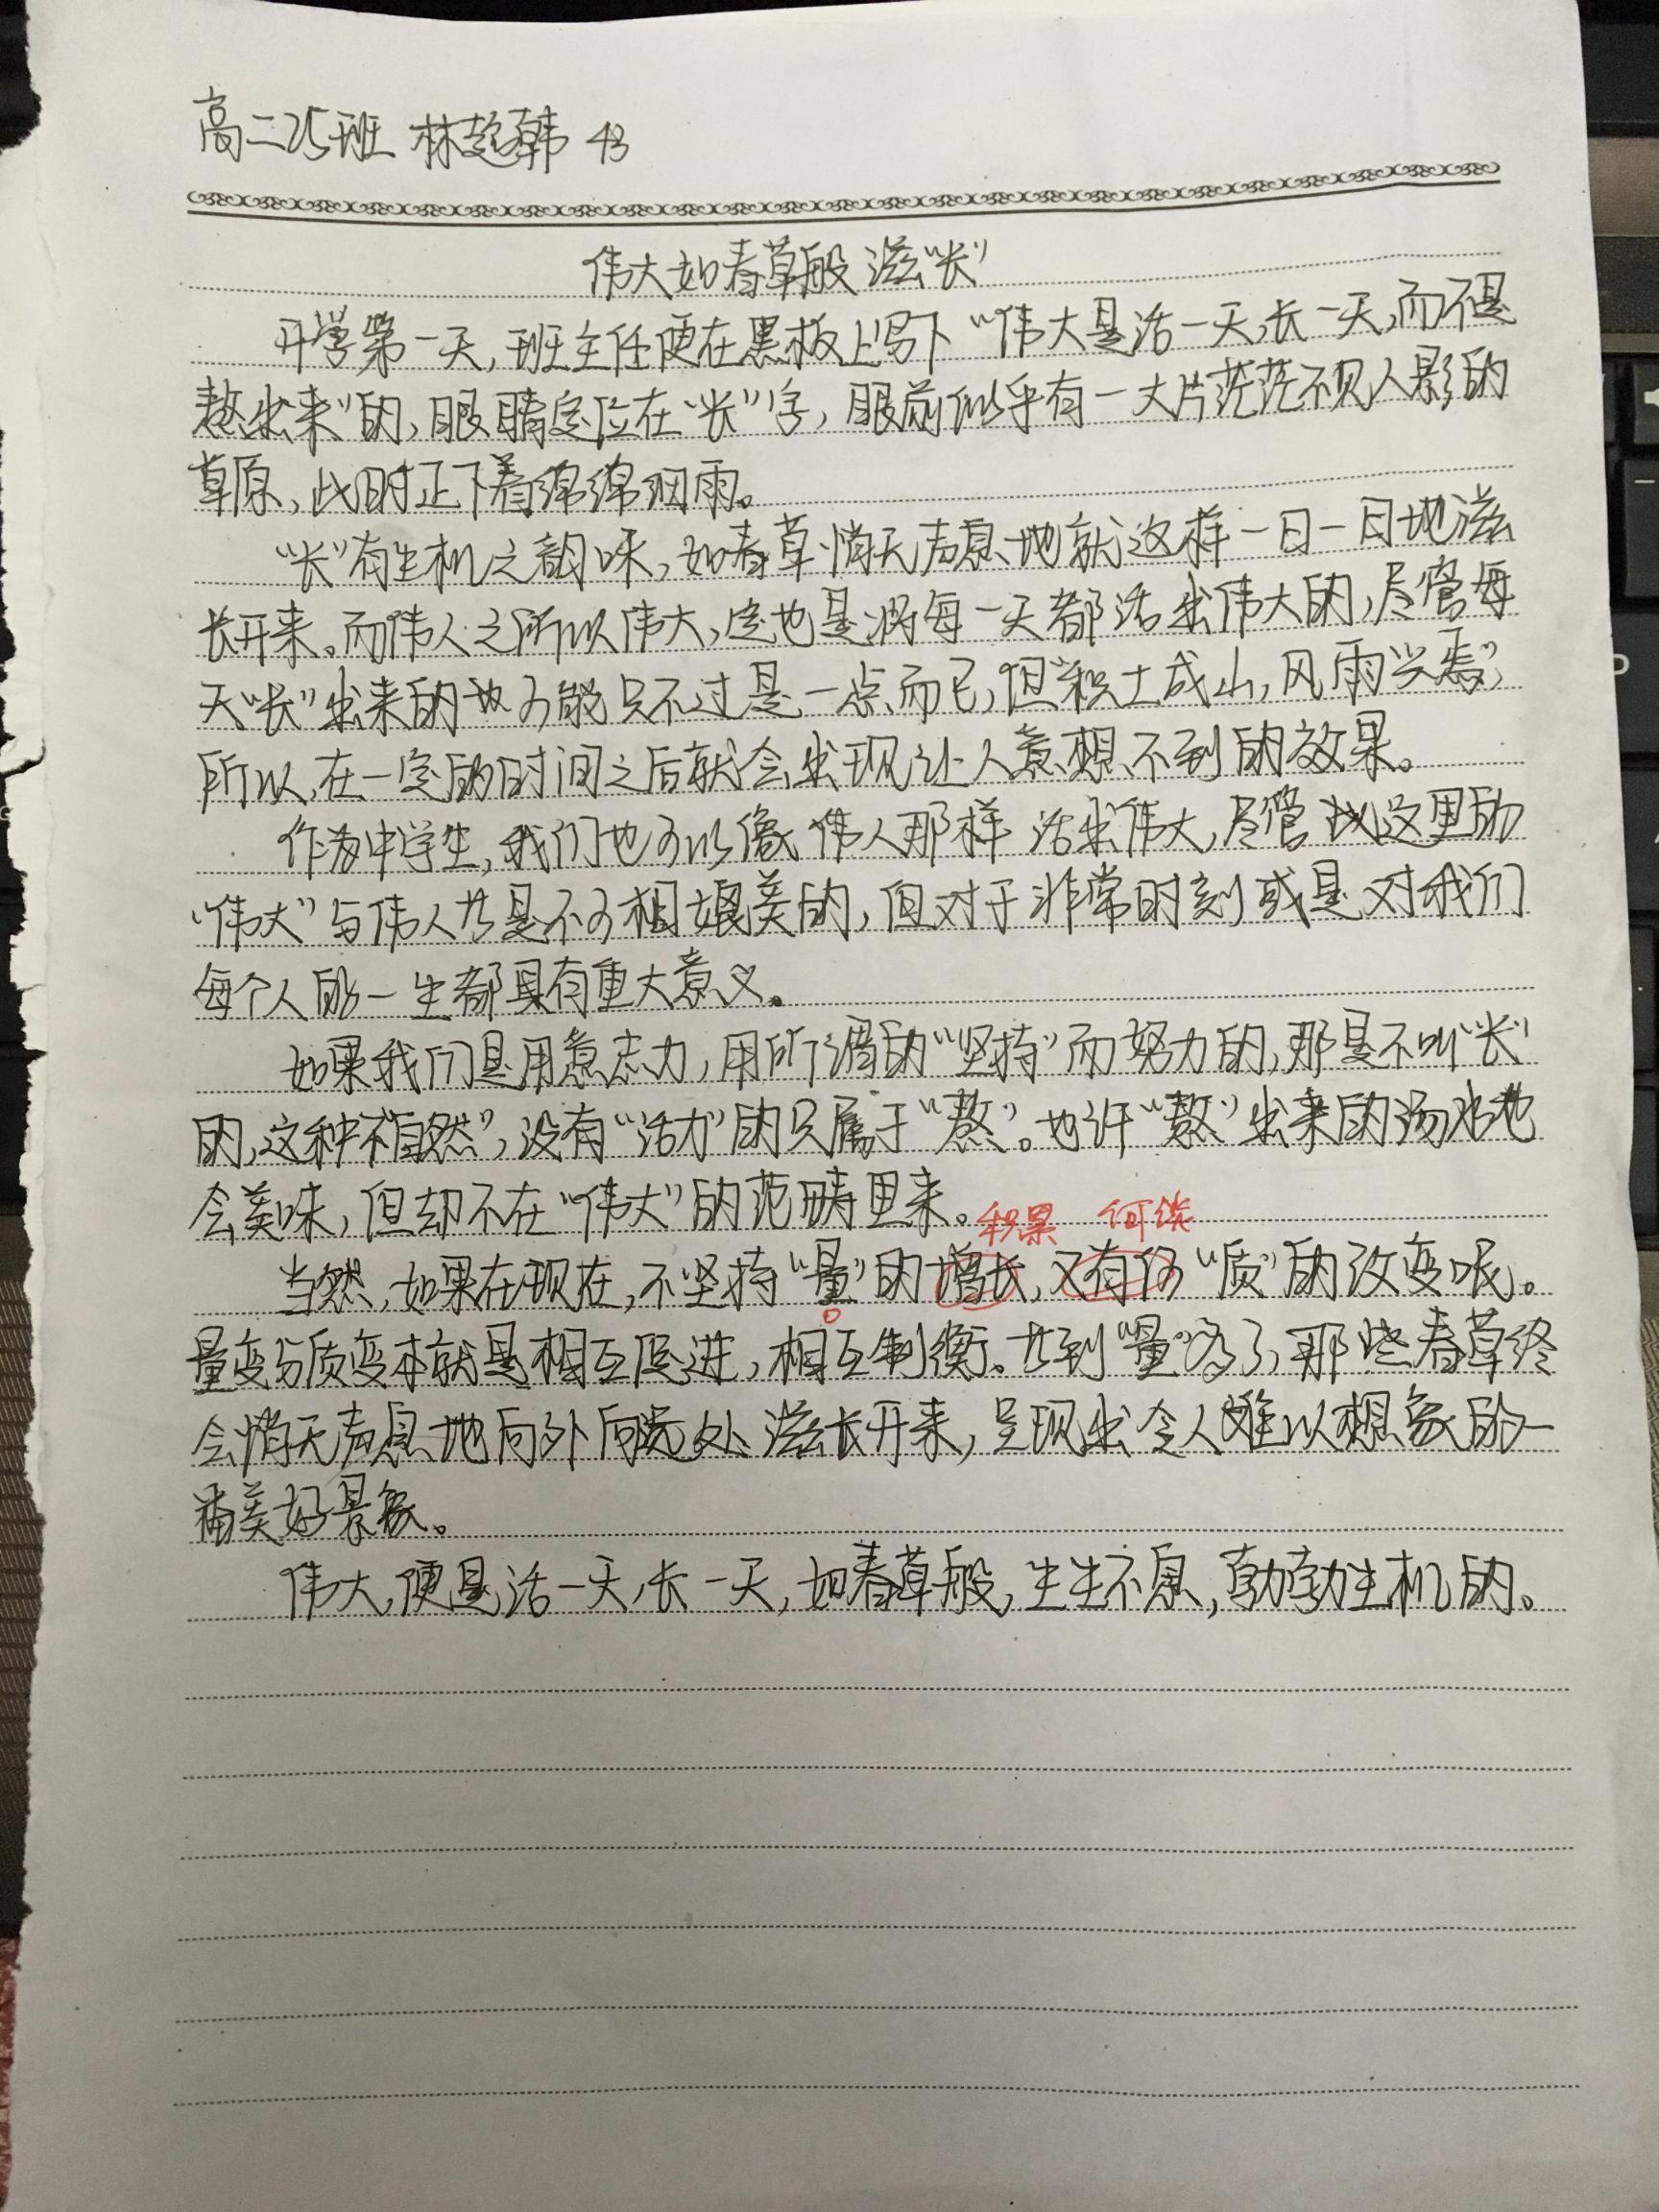 高二25班 林超韩 43
伟大如春草般滋“长”
开学第一天,班主任便在黑板上写下“伟大是活一天,长一天,而不是
熬出来”的,眼睛定位在“长”字,眼前似乎有一大片茫茫不见人影的
草原,此时正下着绵绵细雨。
“长”有生机之韵味,如春草悄无声息地就这样一日一日地滋
长开来。而伟人之所以伟大,定也是将每一天都活出伟大的,尽管每
天“长”出来的也可能只不过是一点而已,但“积土成山,风雨兴焉”,
所以,在一定的时间之后就会出现让人意想不到的效果。
作为中学生,我们也可以像伟人那样活出伟大,尽管我这里的
“伟大”与伟人共是不可相媲美的,但对于非常时刻或是对我们
每个人的一生都具有重大意义。
如果我们是用意志力,用所谓的“坚持”而努力的,那是不叫“长”
的,这种不“自然”,没有“活力”的只属于“熬”。也许“熬”出来的汤水也
会美味,但却不在“伟大”的范畴里来。
积累 何谈
当然,如果在现在,不坚持“量”的增长,又有何“质”的改变呢。
量变与质变本就是相互促进,相互制衡。达到“量”多了,那些春草终
会悄无声息地向外向远处滋长开来,呈现出令人难以想象的一
番美好景象。
伟大,便是活一天,长一天,如春草般,生生不息,勃勃生机的。